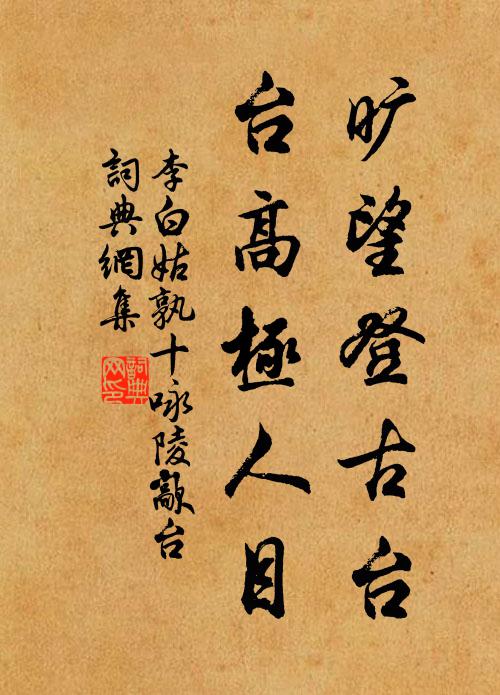 旷望登古台
台高極人目
李白姑孰十咏陵歊台
詞典網集
詞典网印